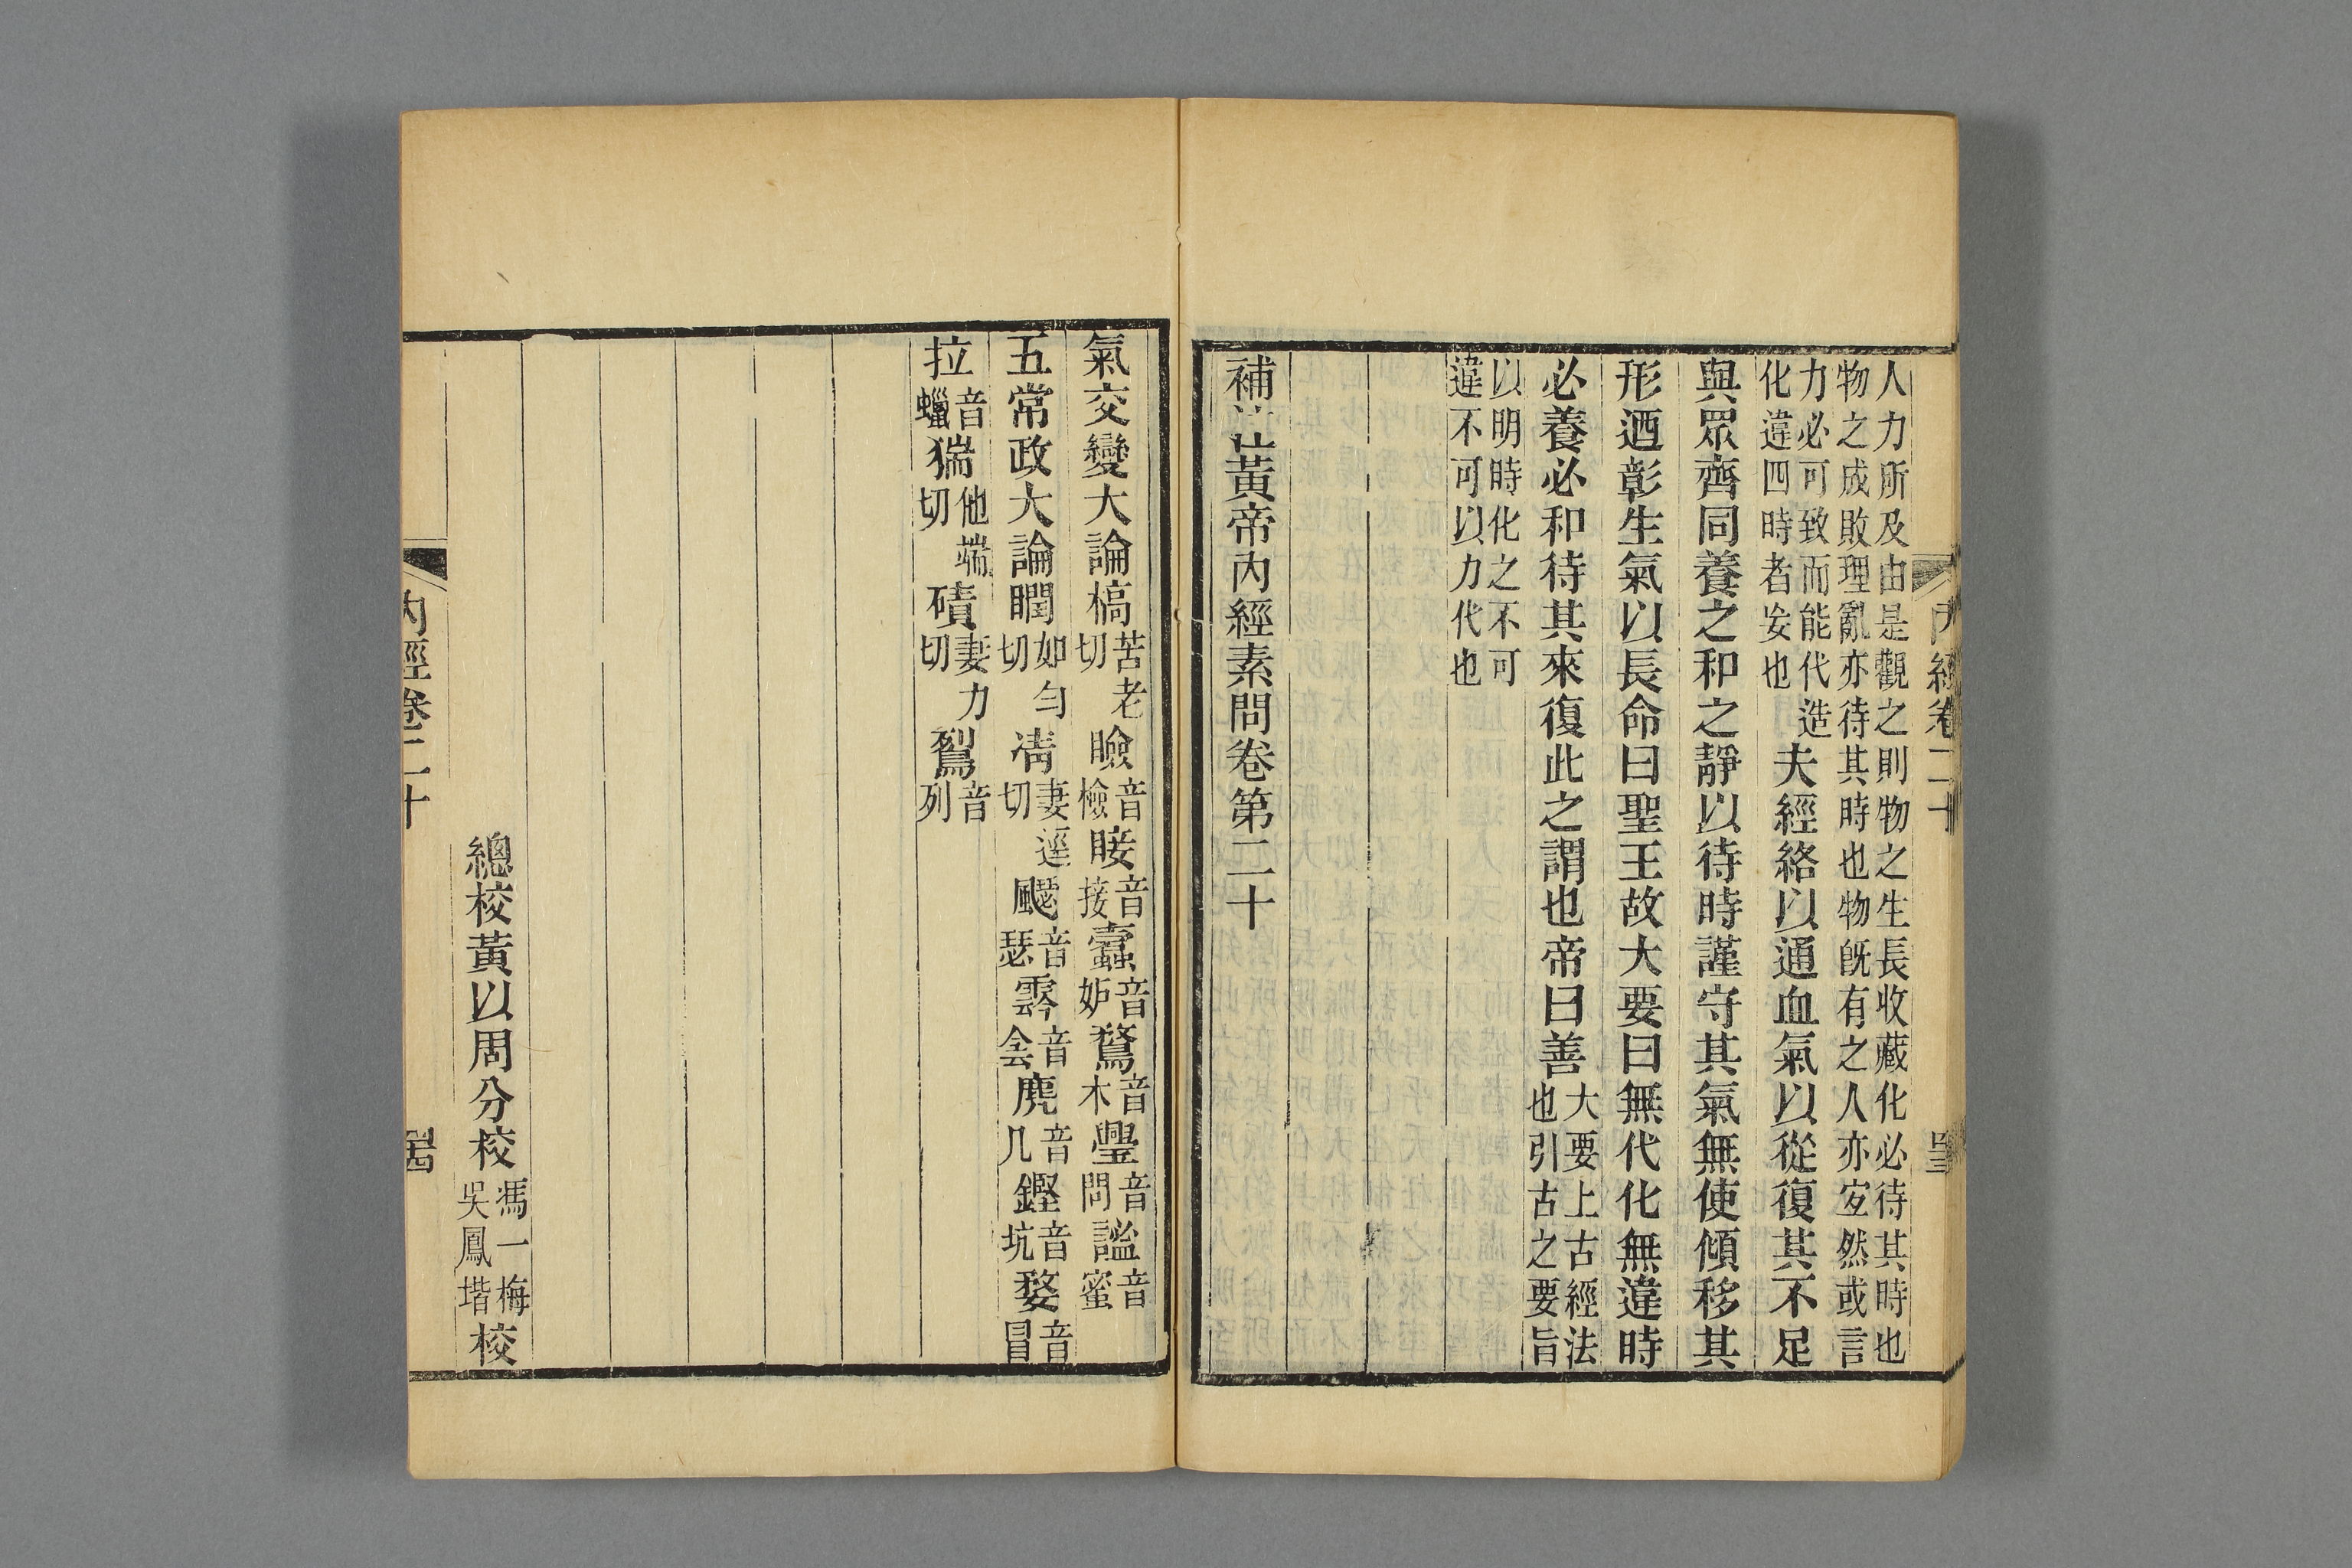 人力所及由是觀之則物之生長收藏化必待其時也
物之成敗理亂亦待其時也物旣有之人亦宐然或言
力必可致而能代造
化違四時者妄也
夫經絡以通血氣以從復其不足
與眾齊同養之和之靜以待時謹守其氣無使傾移其
形迺彰生氣以長命曰聖王故大要曰無代化無違時
必養必和待其來復此之謂也帝曰善
大要上古經法
也引古之要旨
以明時化之不可
違不可以力代也
補注黃帝內經素問卷第二十
內經卷二十
氣交變大論槁苦老切瞼音檢䀹音接蠹音妒鶩音木舋音問謐音蜜
五常政大論瞤如勻切凊妻逕切飋音瑟霒音侌麂音几鏗音坑婺音冒
拉音蠟猯他端切磧妻力切鴷音列
總校黃以周分校馮一梅吳鳳堦校
內經卷二十